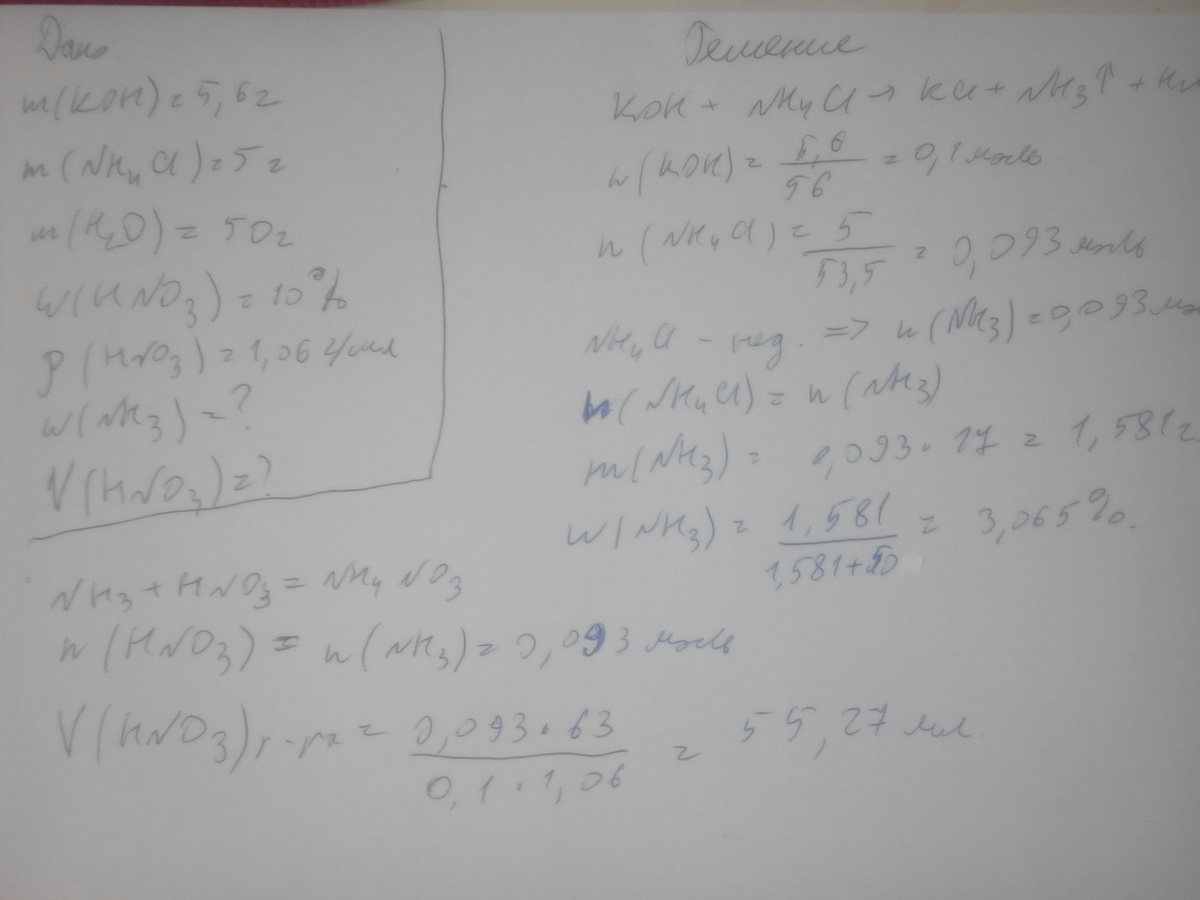 Дано
m(KOH) = 5,6 г
m(NH4Cl) = 5 г
m(H2O) = 50 г
w(HNO3) = 10%
ρ(HNO3) = 1,06 г/мл
w(NH3) = ?
V(HNO3) = ?
Решение
KOH + NH4Cl → KCl + NH3↑ + H
n(KOH) = 5,6 / 56 = 0,1 моль
n(NH4Cl) = 5 / 53,5 = 0,093 моль
NH4Cl - нед. => n(NH3) = 0,093 мо
n(NH4Cl) = n(NH3)
m(NH3) = 0,093 · 17 = 1,581 г.
w(NH3) = 1,581 / 1,581+50 = 3,065%.
NH3 + HNO3 = NH4NO3
n(HNO3) = n(NH3) = 0,093 моль
V(HNO3)р-ра = 0,093 · 63 / 0,1 · 1,06 = 55,27 мл